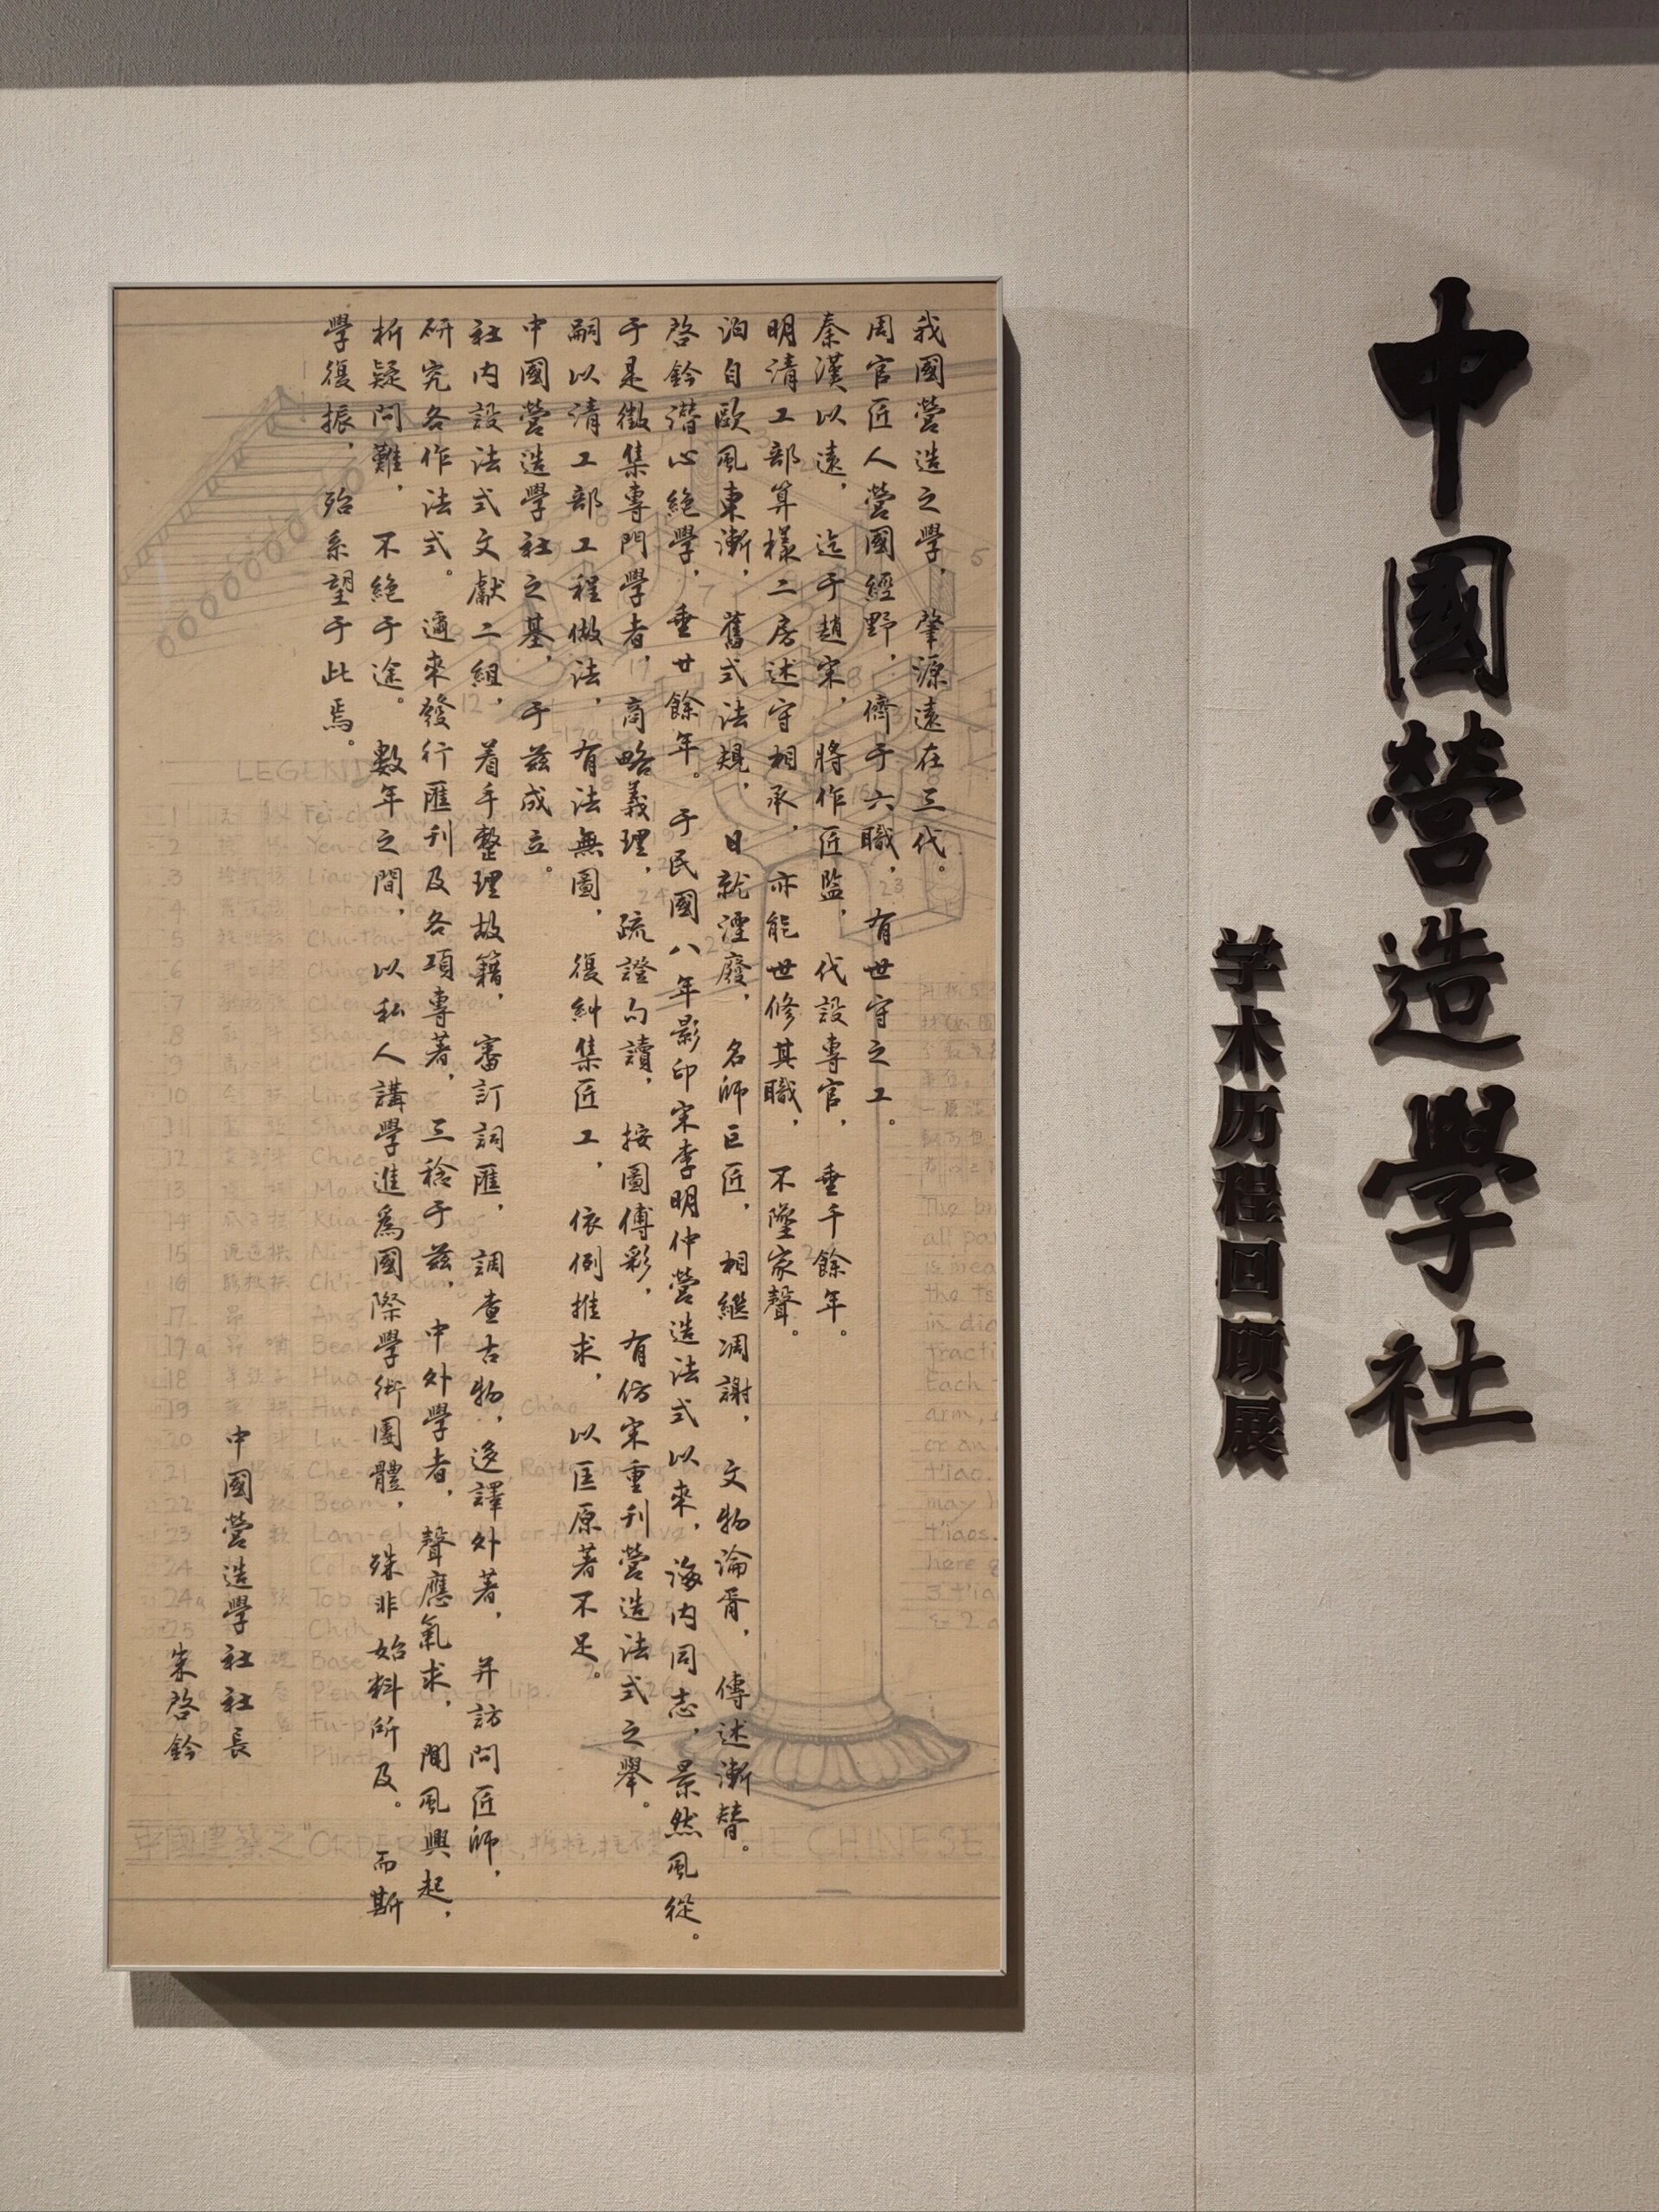 中國營造學社
学术历程回顾展
我國營造之學，肇源遠在三代。
周官匠人營國經野，儕于六職，有世守之工。
秦漢以遠，迄于趙宋，將作匠監，代設專官，垂千餘年。
明清工部算樣二房述守相承，亦能世修其職，不墜家聲。
洎自歐風東漸，舊式法規，日就湮廢，名師巨匠，相繼凋謝，文物淪胥，傳述漸替。
啓鈐潛心絕學，垂廿餘年。于民國八年影印宋李明仲營造法式以來，海内同志，景然風從。
于是徵集專門學者，商略義理，疏證句讀，按圖傅彩，有仿宋重刊營造法式之舉。
嗣以清工部工程做法，有法無圖，復糾集匠工，依例推求，以匡原著不足。
中國營造學社之基，于兹成立。
社内設法式文獻二組，着手整理故籍，審訂詞匯，調查古物，迻譯外著，并訪問匠師，
研究各作法式。邇來發行匯刊及各項專著，三稔于兹，中外學者，聲應氣求，聞風興起，
析疑問難，不絕于途。數年之間，以私人講學進爲國際學術團體，殊非始料所及。而斯
學復振，殆系望于此焉。
中國營造學社社長
朱啓鈐
LEGEND
1
2
3
4
5
6
7
8
9
10
11
12
13
14
15
16
17 昂 Ang
17a
18
19
20
21
22 Beam
23
24
24a
25
Base
Plinth
中國建築之"ORDER"
THE CHINESE